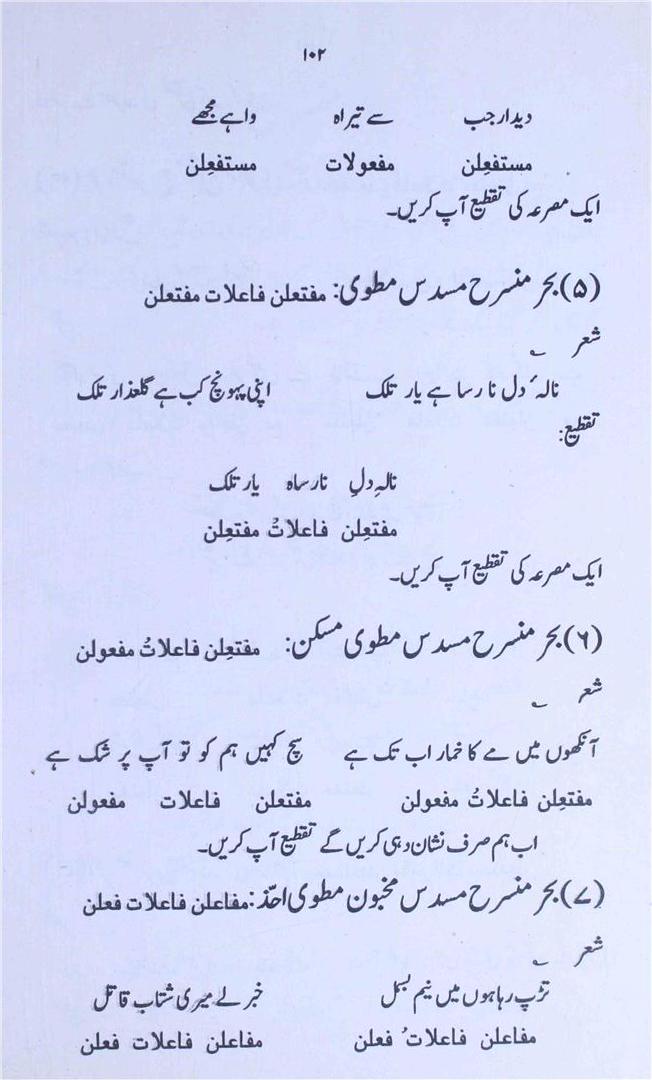 ۱۰۲
دیدار جب سے تیراہ واہے مجھے
مستفعِلن مفعولات مستفعِلن
ایک مصرعہ کی تقطیع آپ کریں۔
(۵) بحر منسرح مسدس مطوی: مفتعلن فاعلات مفتعلن
شعر ؎
نالۂ دل نارسا ہے یار تلک اپنی پہونچ کب ہے گلعذار تلک
تقطیع:
نالہِ دلِ نارساہ یار تلک
مفتعِلن فاعلاتُ مفتعِلن
ایک مصرعہ کی تقطیع آپ کریں۔
(۶) بحر منسرح مسدس مطوی مسکن: مفتعِلن فاعلاتُ مفعولن
شعر ؎
آنکھوں میں مے کا خمار اب تک ہے سچ کہیں ہم کو تو آپ پر شک ہے
مفتعِلن فاعلاتُ مفعولن مفتعلن فاعلات مفعولن
اب ہم صرف نشان دہی کریں گے تقطیع آپ کریں۔
(۷) بحر منسرح مسدس مخبون مطوی احذ: مفاعلن فاعلات فعلن
شعر ؎
تڑپ رہا ہوں میں نیم بسمل خبر لے میری شتاب قاتل
مفاعلن فاعلاتُ فعلن مفاعلن فاعلات فعلن